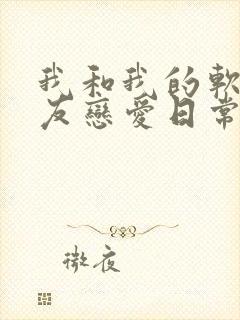 我和我的軟
友戀愛日常
微夜